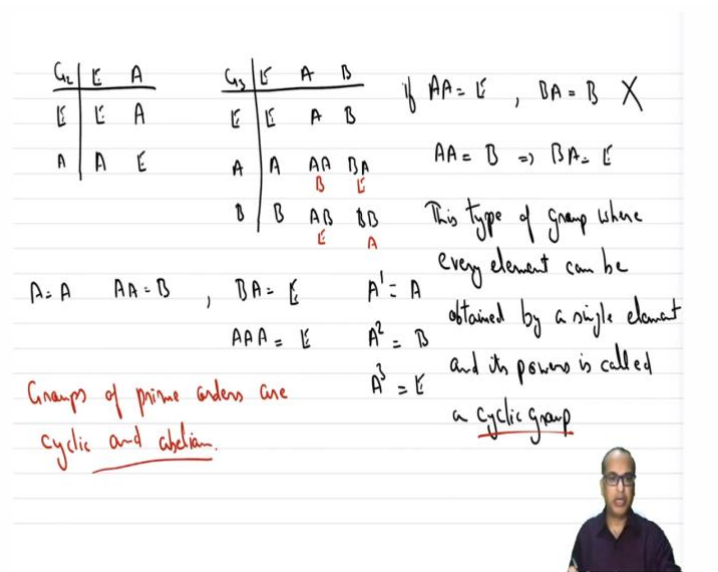 G₂ E A
E E A
A A E
G₃ E A B
E E A B
A A AA BA
B E
B B AB BB
E A
if AA = E , BA = B X
AA = B => BA = E
This type of group where
every element can be
obtained by a single element
and its powers is called
a cyclic group
A = A AA = B , BA = E
AAA = E
A¹ = A
A² = B
A³ = E
Groups of prime orders are
cyclic and abelian.